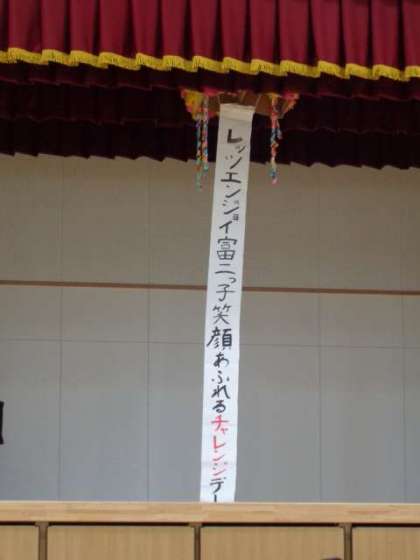 レッツエンジョイ富二っ子笑顔あふれるチャレンジデー